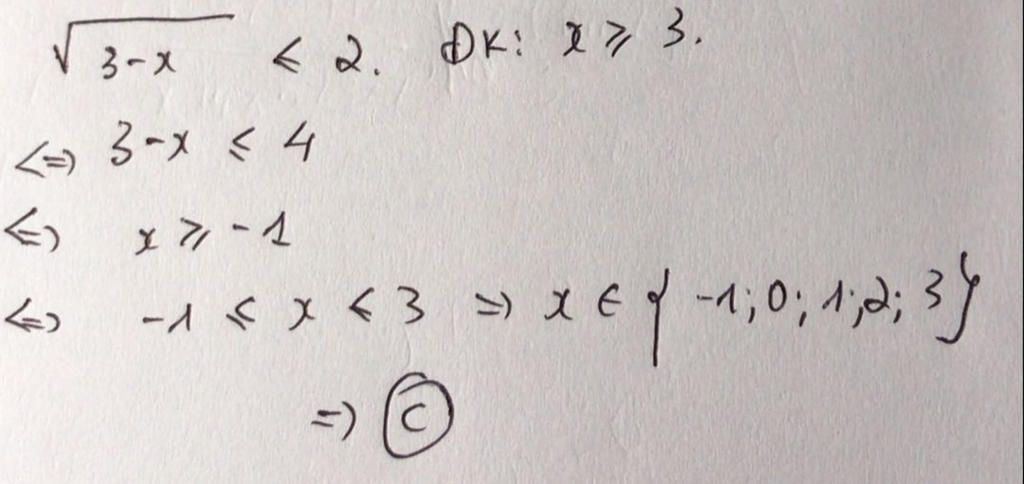 √(3-x) ≤ 2. ĐK: x ≥ 3.
<=> 3-x ≤ 4
<=> x ≥ -1
<=> -1 ≤ x ≤ 3 => x ∈ { -1; 0; 1; 2; 3}
=> C